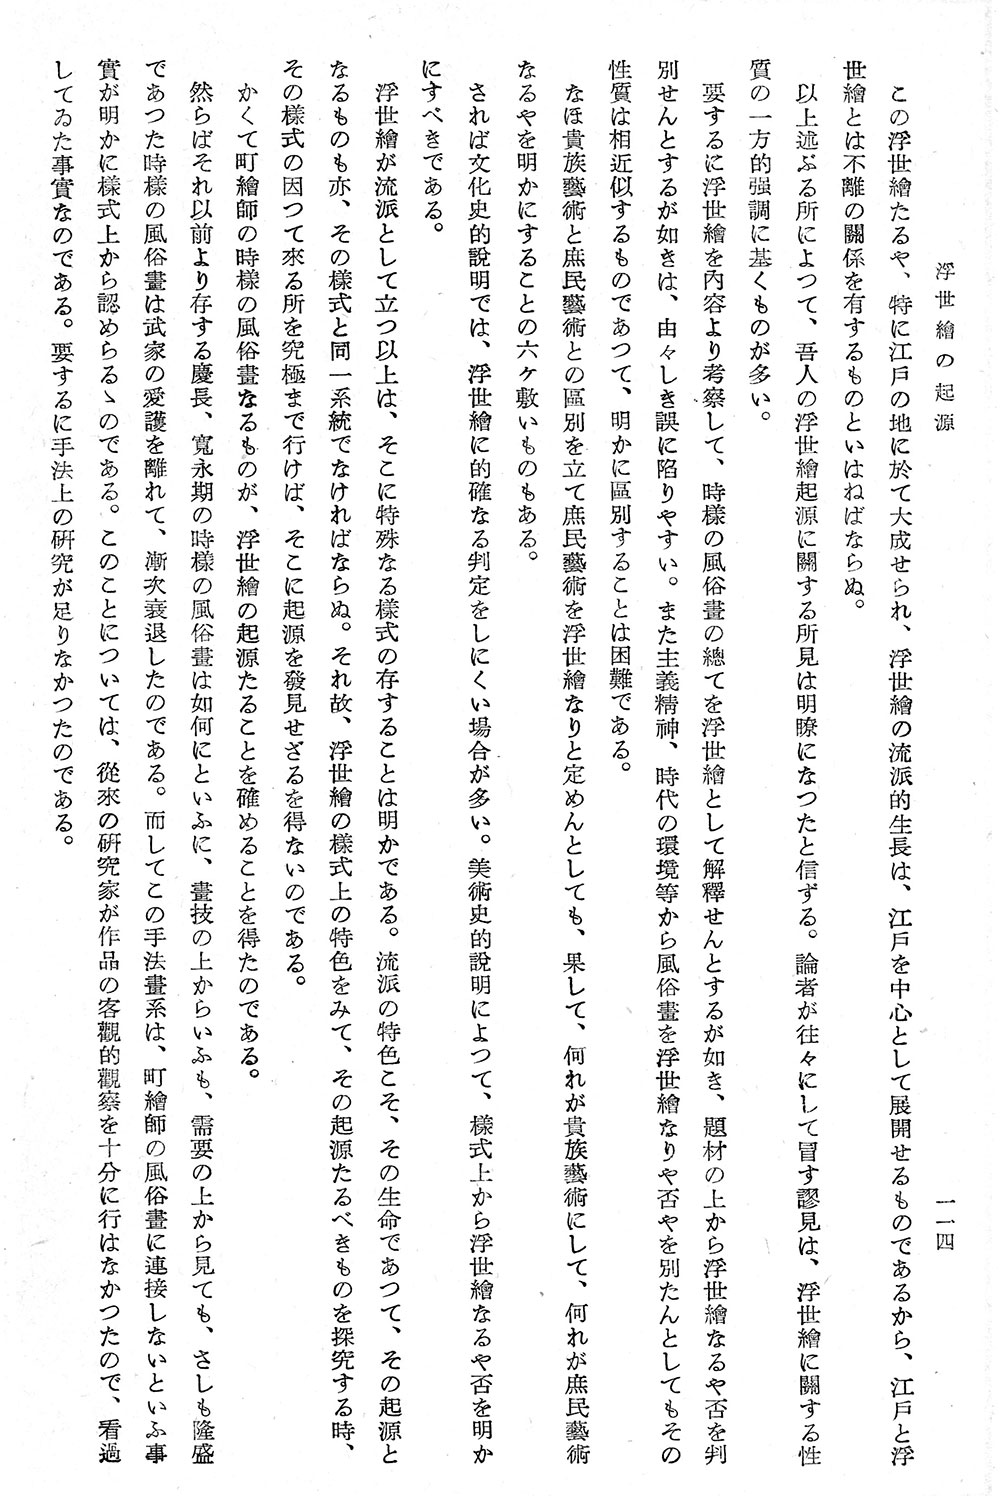 浮世繪の起源
一一四
この浮世繪たるや、特に江戸の地に於て大成せられ、浮世繪の流派的生長は、江戸を中心として展開せるものであるから、江戸と浮
世繪とは不離の關係を有するものといはねばならぬ。
以上述ぶる所によつて、吾人の浮世繪起源に關する所見は明瞭になつたと信ずる。論者が往々にして冒す謬見は、浮世繪に關する性
質の一方的强調に基くものが多い。
要するに浮世繪を內容より考察して、時樣の風俗畫の總てを浮世繪として解釋せんとするが如き、題材の上から浮世繪なるや否を判
別せんとするが如きは、由々しき誤に陷りやすい。また主義精神、時代の環境等から風俗畫を浮世繪なりや否やを別たんとしてもその
性質は相近似するものであつて、明かに區別することは困難である。
なほ貴族藝術と庶民藝術との區別を立て庶民藝術を浮世繪なりと定めんとしても、果して、何れが貴族藝術にして、何れが庶民藝術
なるやを明かにすることの六ケ敷いものもある。
されば文化史的說明では、浮世繪に的確なる判定をしにくい場合が多い。美術史的說明によつて、樣式上から浮世繪なるや否を明か
にすべきである。
浮世繪が流派として立つ以上は、そこに特殊なる樣式の存することは明かである。流派の特色こそ、その生命であつて、その起源と
なるものも亦、その樣式と同一系統でなければならぬ。それ故、浮世繪の樣式上の特色をみて、その起源たるべきものを探究する時、
その樣式の因つて來る所を究極まで行けば、そこに起源を發見せざるを得ないのである。
かくて町繪師の時樣の風俗畫なるものが、浮世繪の起源たることを確めることを得たのである。
然らばそれ以前より存する慶長、寬永期の時樣の風俗畫は如何にといふに、畫技の上からいふも、需要の上から見ても、さしも隆盛
であつた時樣の風俗畫は武家の愛護を離れて、漸次衰退したのである。而してこの手法畫系は、町繪師の風俗畫に連接しないといふ事
實が明かに樣式上から認めらるゝのである。このことについては、從來の硏究家が作品の客觀的觀察を十分に行はなかつたので、看過
してゐた事實なのである。要するに手法上の硏究が足りなかつたのである。